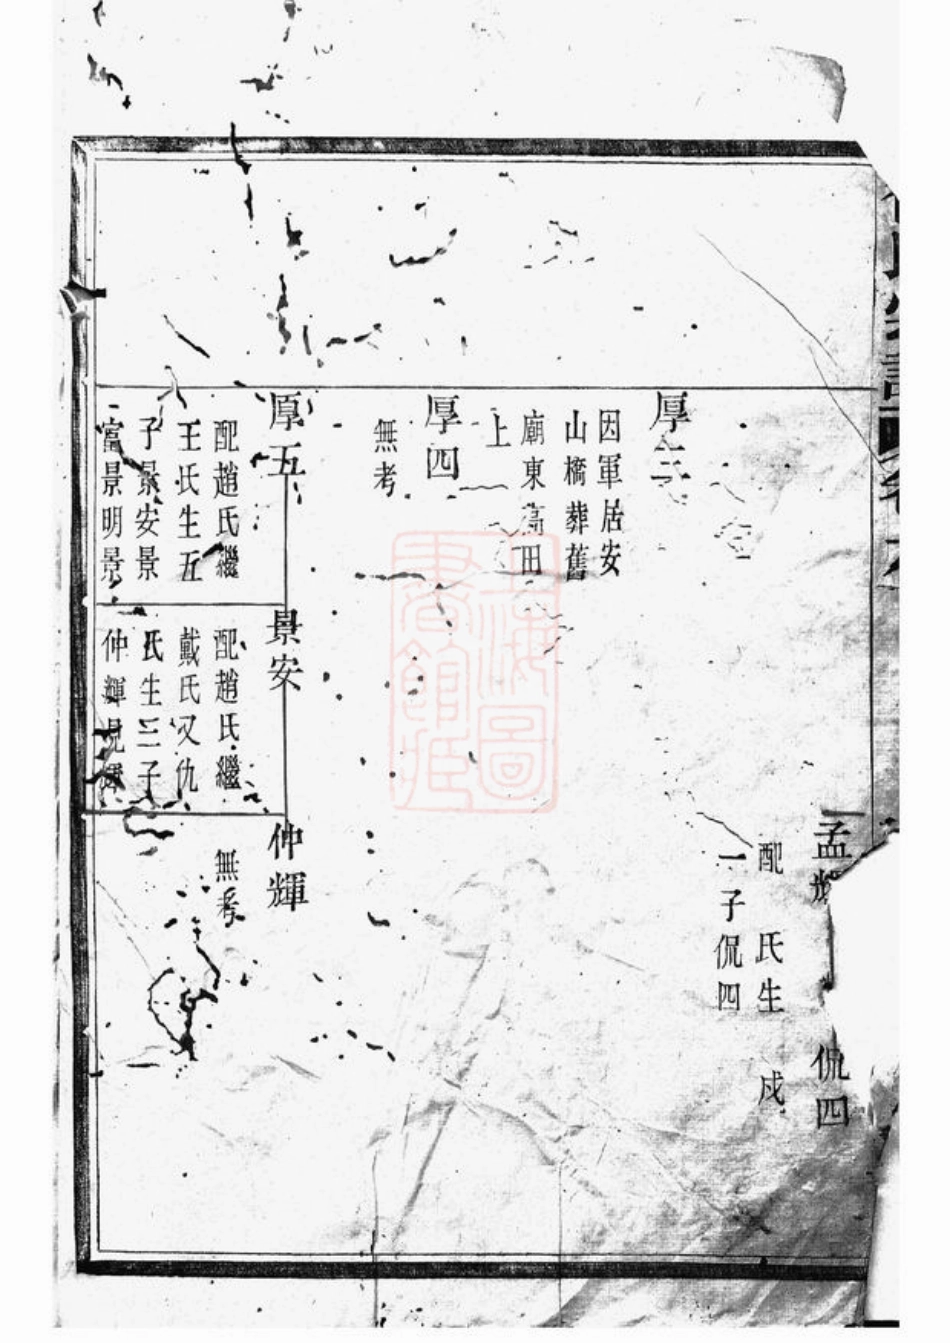 孟輝
侃四
配 氏生
一子侃四
戍
厚三
因軍居安
山橋葬舊
廟東高田
上
厚四
無考
厚五
配趙氏繼
王氏生五
子景安景
富景明景
景安
配趙氏繼
戴氏又仇
氏生三子
仲輝見輝
仲輝
無考
上海圖書館藏